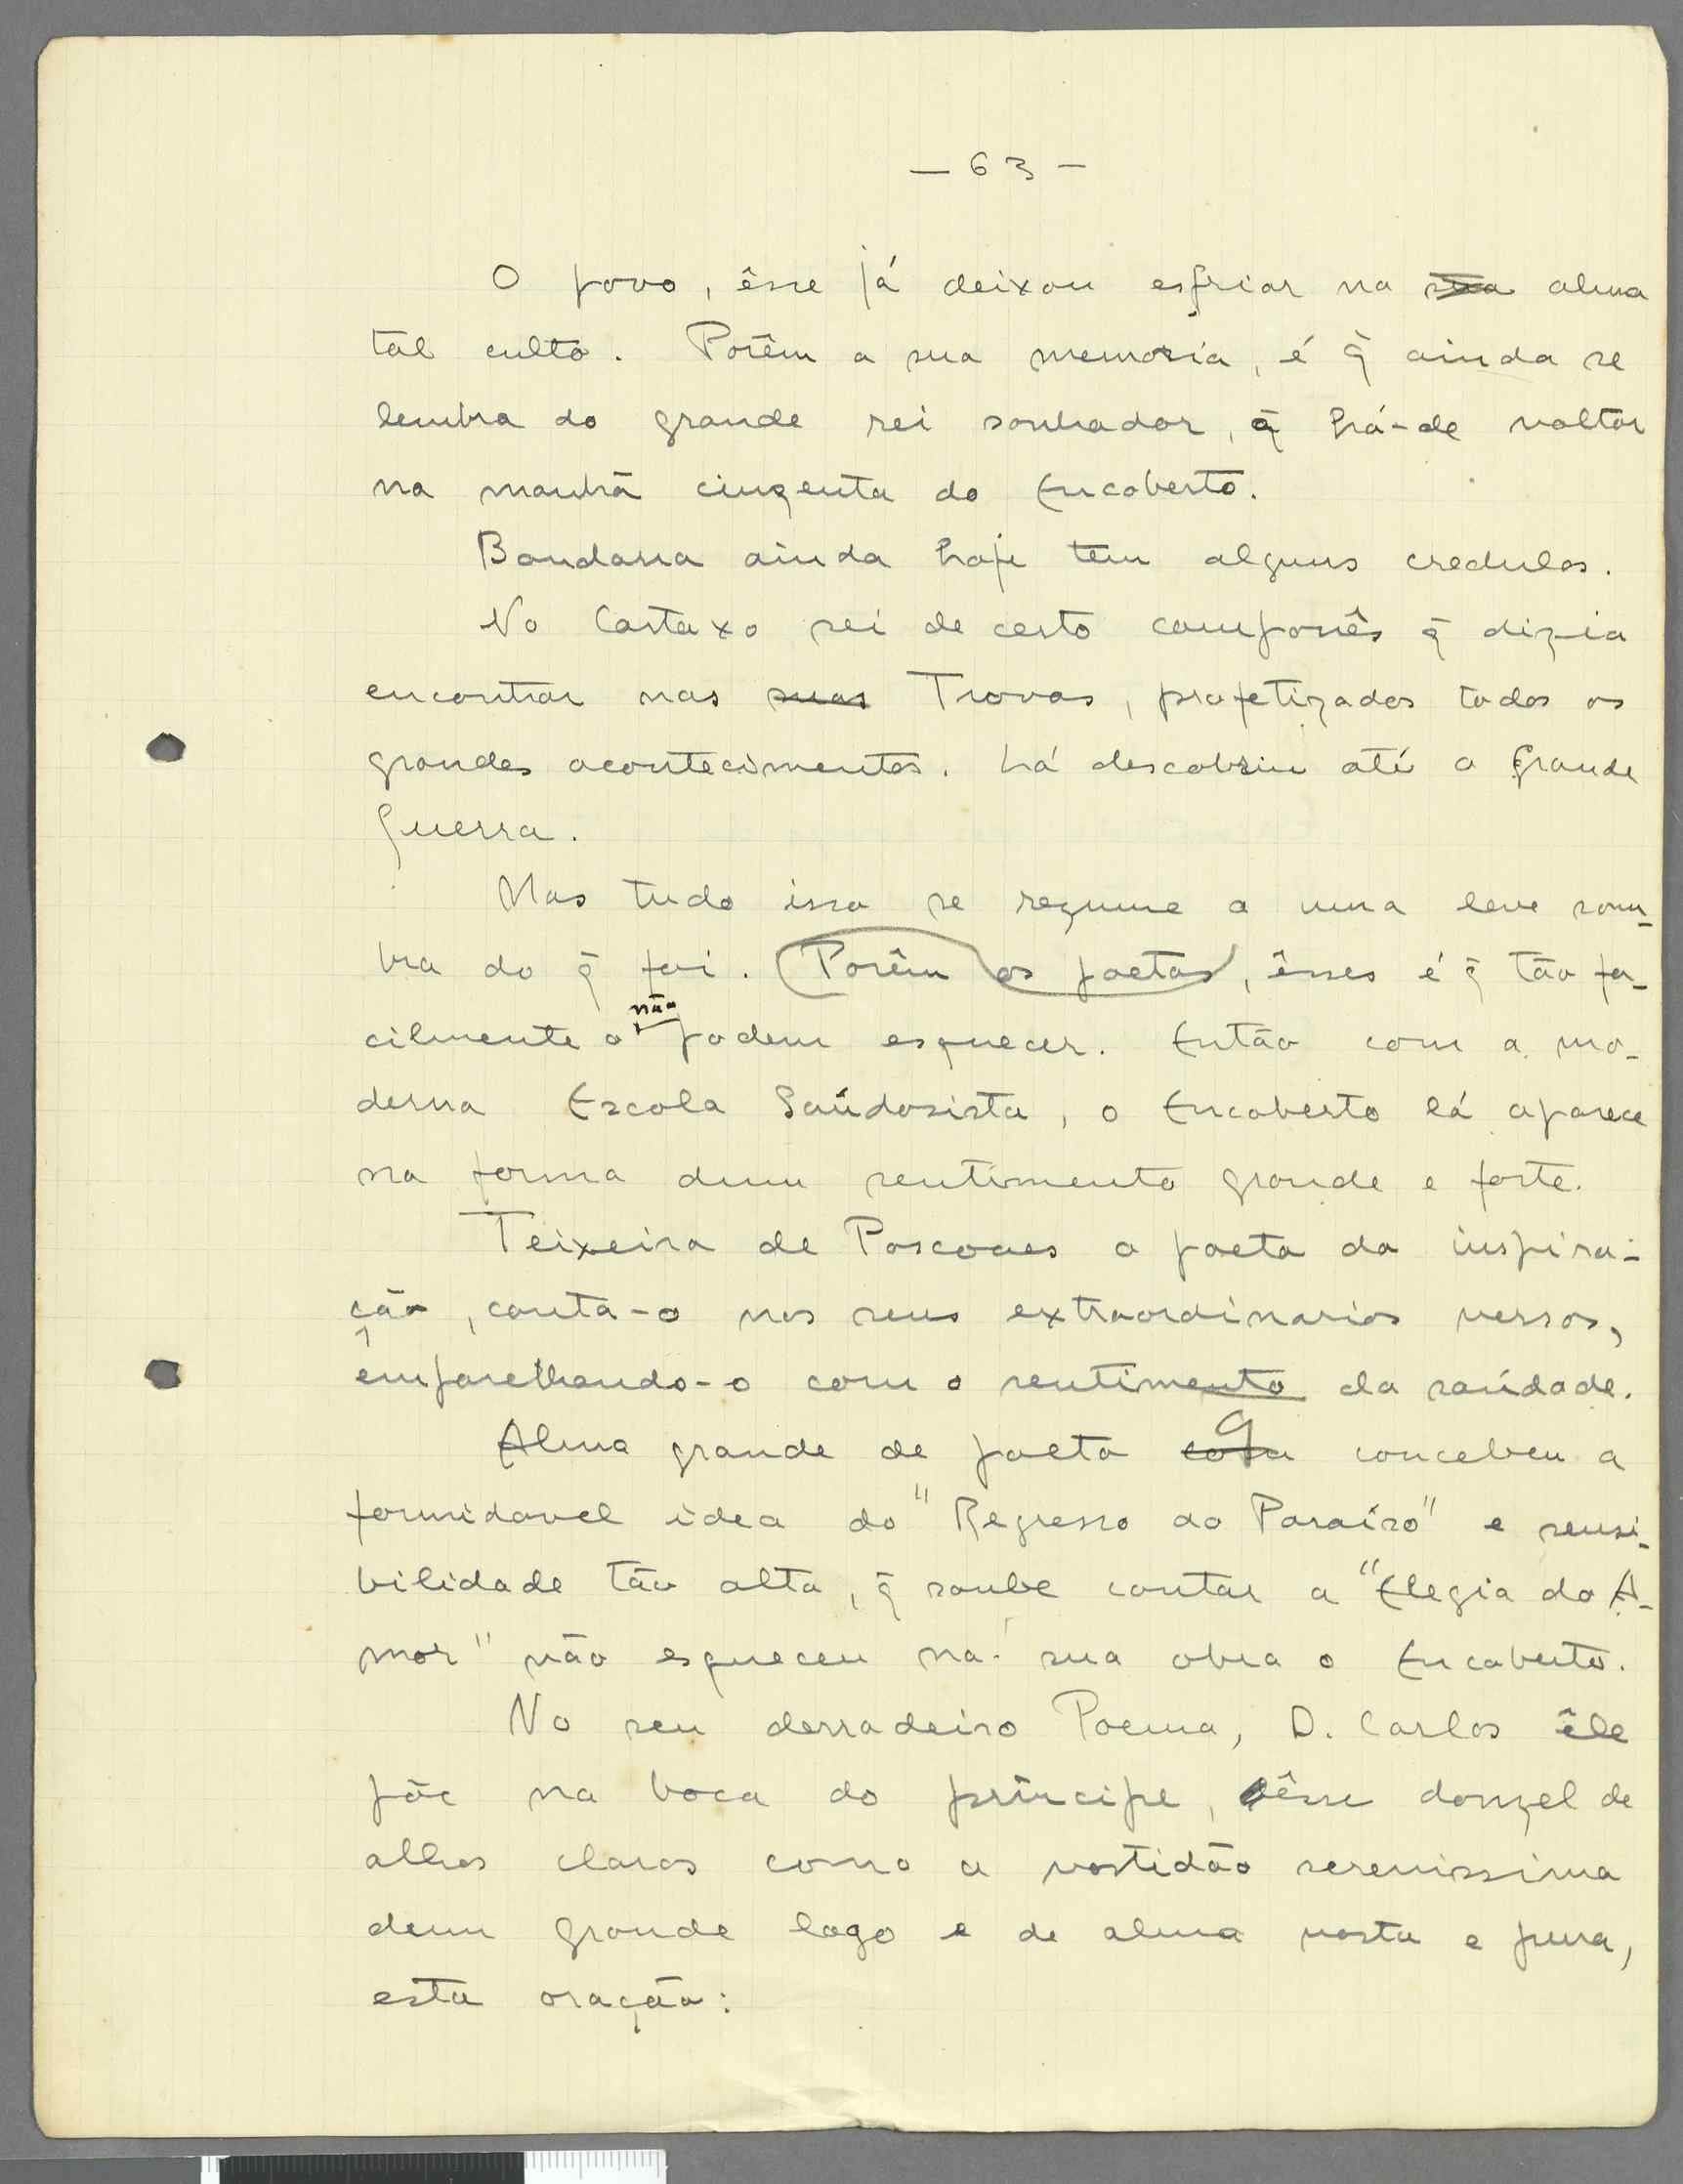 — 63 —
O povo, êsse já deixou esfriar na sua alma
tal culto. Porêm a sua memoria, é q̃ ainda se
lembra do grande rei sonhador, q̃ há-de voltar
na manhã cinzenta do Encoberto.
Bandarra ainda hoje tem alguns credulos.
No Cartaxo sei de certo camponês q̃ dizia
encontrar nas suas Trovas, profetizados todos os
grandes acontecimentos. Lá descobriu até a Grande
Guerra.
Mas tudo isso se rezume a uma leve som-
bra do q̃ foi. Porêm os poetas, êsses é q̃ tão fa-
cilmente o não podem esquecer. Então com a mo-
derna Escola Saúdosista, o Encoberto lá aparece
na forma dum sentimento grande e forte.
Teixeira de Pascoaes o poeta da inspira-
ção, canta-o nos seus extraordinarios versos,
emparelhando-o com o sentimento da saúdade.
Alma grande de poeta q concebeu a
formidavel idea do "Regresso ao Paraíso" e sensi-
bilidade tão alta, q̃ soube cantar a "Elegia do A-
mor" não esqueceu na sua obra o Encoberto.
No seu derradeiro Poema, D. Carlos êle
põe na boca do príncipe, êsse donzel de
olhos claros como a vastidão serenissima
dum grande lago e de alma vasta e pura,
esta oração: